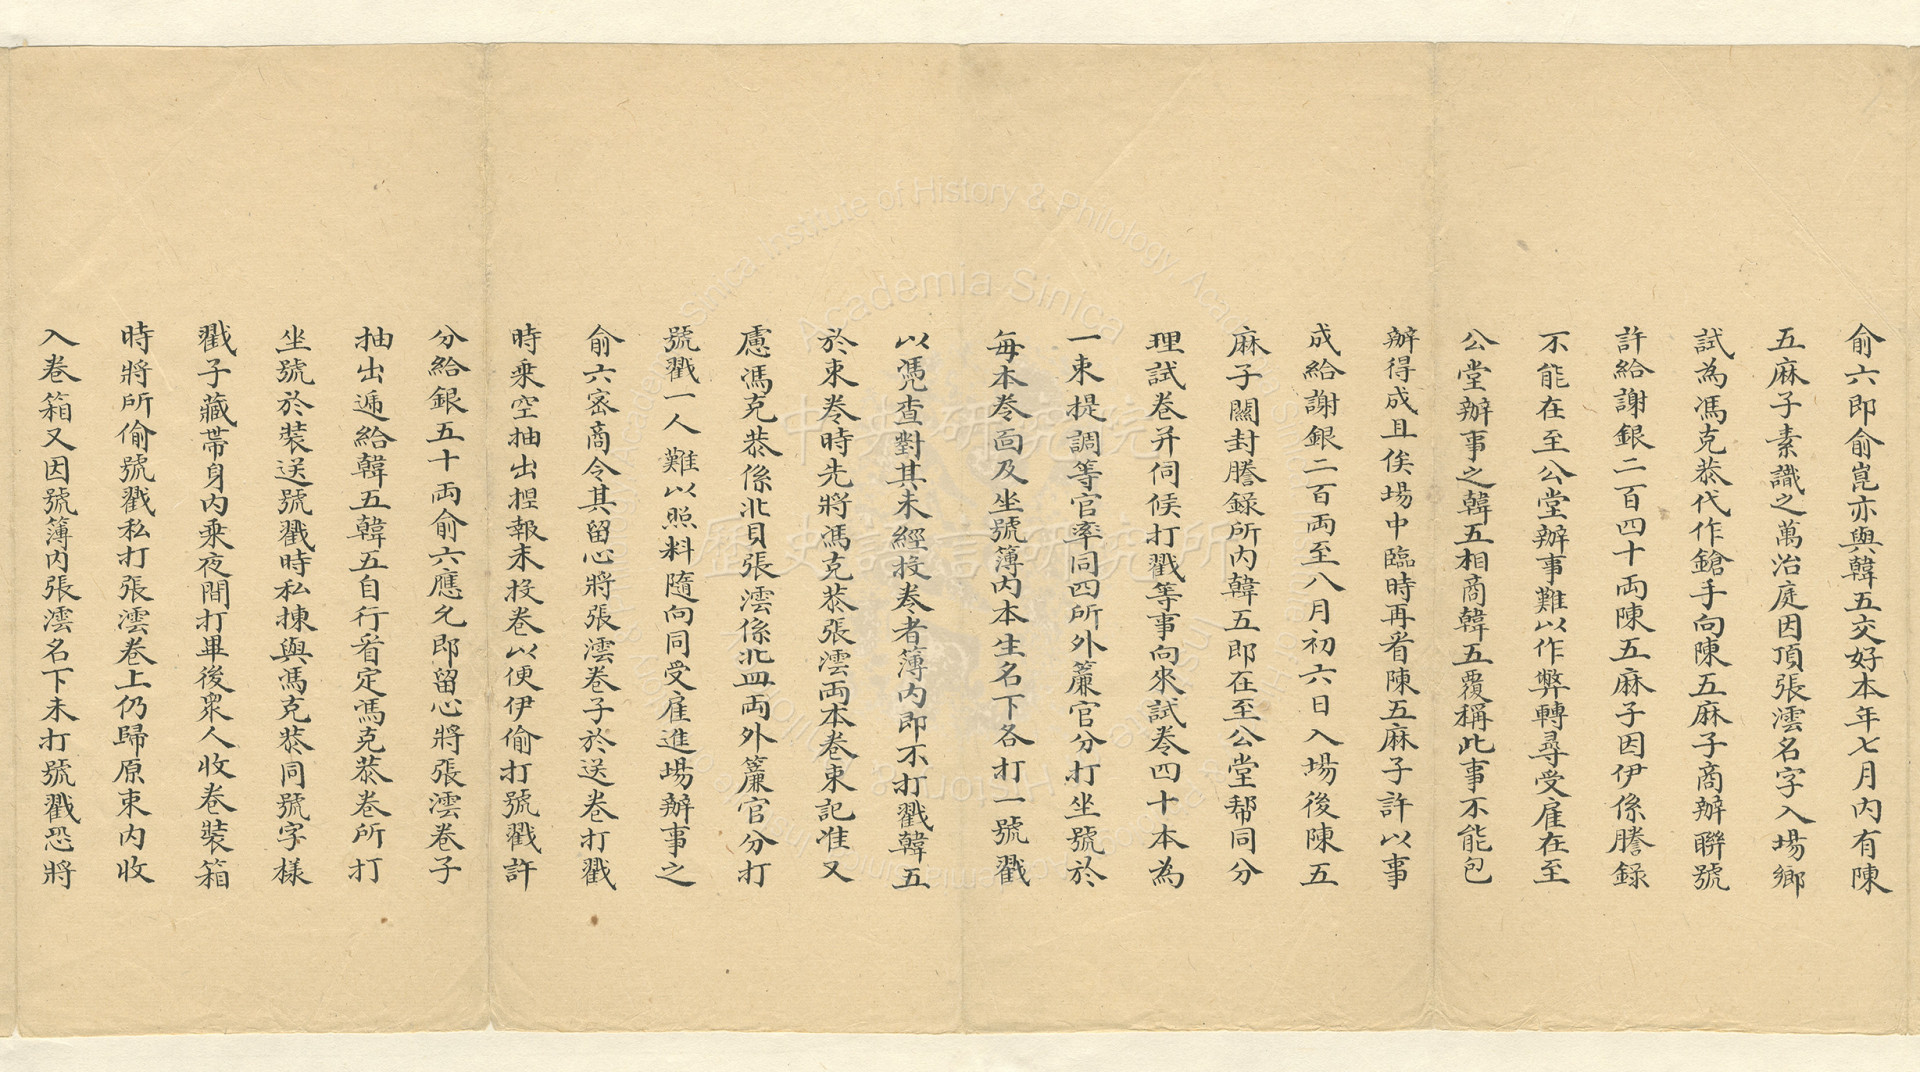 俞六即俞崑亦與韓五交好本年七月內有陳
五麻子素識之萬治庭因頂張澐名字入場鄉
試為馮克恭代作鎗手向陳五麻子商辦聯號
許給謝銀二百四十両陳五麻子因伊係謄錄
不能在至公堂辦事難以作弊轉尋受雇在至
公堂辦事之韓五相商韓五覆稱此事不能包
辦得成且俟場中臨時再看陳五麻子許以事
成給謝銀二百両至八月初六日入場後陳五
麻子關封謄錄所內韓五即在至公堂帮同分
理試卷并伺候打戳等事向來試卷四十本為
一束提調等官率同四所外簾官分打坐號於
每本卷面及坐號簿內本生名下各打一號戳
以憑查對其未經投卷者簿內即不打戳韓五
於束卷時先將馮克恭張澐両本卷束記准又
慮馮克恭係北貝張澐係北皿両外簾官分打
號戳一人難以照料隨向同受雇進場辦事之
俞六密商令其留心將張澐卷子於送卷打戳
時乗空抽出捏報未投卷以便伊偷打號戳許
分給銀五十両俞六應允即留心將張澐卷子
抽出遞給韓五韓五自行看定馮克恭卷所打
坐號於裝送號戳時私揀與馮克恭同號字樣
戳子藏帶身內乘夜間打畢後衆人收卷裝箱
時將所偷號戳私打張澐卷上仍歸原束內收
入卷箱又因號簿內張澐名下未打號戳恐將
中央研究院
歷史語言研究所
Academia Sinica
Institute of History & Philology